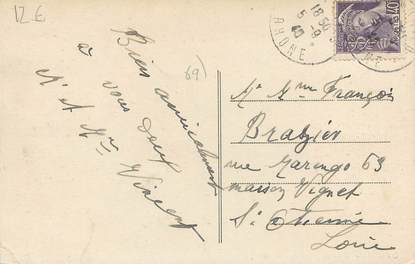 12 €
69
18 50
5-9
40
RHONE
Bien amicalement
à vous deux
Mr Mme Vincent
Mr Mme François
Brazier
rue Marengo 63
maison Vignet
St Etienne
Loire